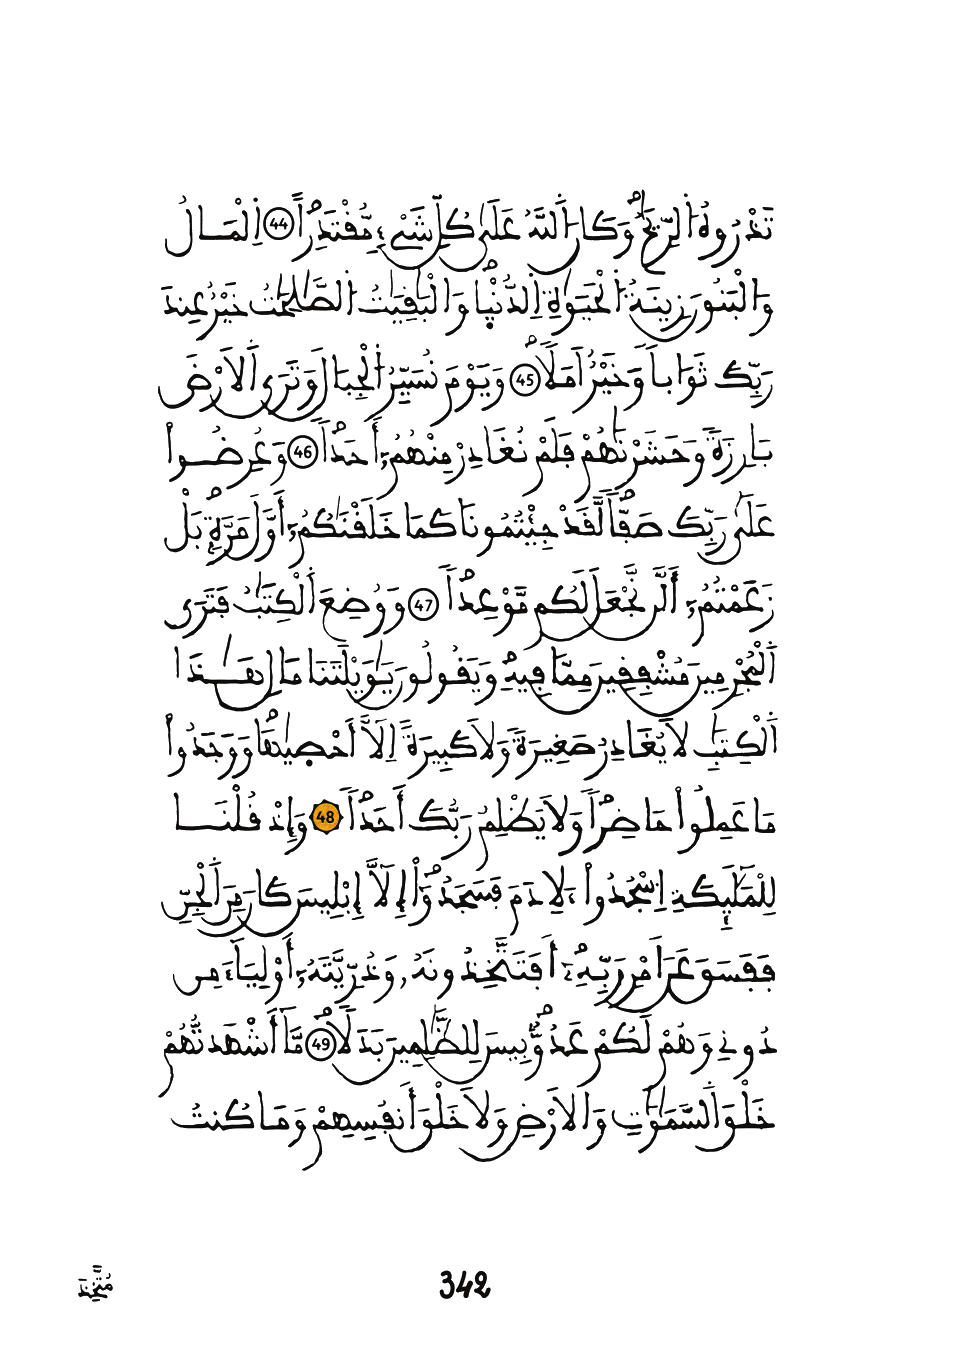 تَذْرُوهُ اُ۬لرِّيَٰحُۖ وَكَانَ اَ۬للَّهُ عَلَىٰ كُلِّ شَےْءٖ مُّقْتَدِراًۖ 44 اِ۬لْمَالُ
وَالْبَنُونَ زِينَةُ اُ۬لْحَيَوٰةِ اِ۬لدُّنْي۪اۖ وَالْبَٰقِيَٰتُ اُ۬لصَّٰلِحَٰتُ خَيْرٌ عِندَ
رَبِّكَ ثَوَاباٗ وَخَيْرٌ اَمَلاٗۖ 45 وَيَوْمَ نُسَيِّرُ اُ۬لْجِبَالَ وَتَرَي اَ۬لَارْضَ
بَارِزَةٗ وَحَشَرْنَٰهُمْ فَلَمْ نُغَادِرْ مِنْهُمُۥٓ أَحَداٗۖ 46 وَعُرِضُواْ
عَلَىٰ رَبِّكَ صَفّاٗ لَّقَدْ جِئْتُمُونَا كَمَا خَلَقْنَٰكُمُۥٓ أَوَّلَ مَرَّةِۢ بَلْ
زَعَمْتُمُۥٓ أَلَّن نَّجْعَلَ لَكُم مَّوْعِداٗۖ 47 وَوُضِعَ اَ۬لْكِتَٰبُ فَتَرَي
اَ۬لْمُجْرِمِينَ مُشْفِقِينَ مِمَّا فِيهِۖ وَيَقُولُونَ يَٰوَيْلَتَنَا مَالِ هَٰذَا
اَ۬لْكِتَٰبِ لَا يُغَادِرُ صَغِيرَةٗ وَلَا كَبِيرَةً اِلَّآ أَحْص۪يٰهَاۖ وَوَجَدُواْ
مَا عَمِلُواْ حَاضِراٗۖ وَلَا يَظْلِمُ رَبُّكَ أَحَداٗۖ 48 وَإِذْ قُلْنَا
لِلْمَلَٰٓئِكَةِ اِ۟سْجُدُواْ لِأٓدَمَ فَسَجَدُوٓاْ إِلَّآ إِبْلِيسَ كَانَ مِنَ اَ۬لْجِنِّ
فَفَسَقَ عَنَ اَمْرِ رَبِّهِۦٓۖ أَفَتَتَّخِذُونَهُۥ وَذُرِّيَّتَهُۥٓ أَوْلِيَآءَ مِن
دُونِے وَهُمْ لَكُمْ عَدُوُّۢ بِيسَ لِلظَّٰلِمِينَ بَدَلاٗۖ 49 مَّآ أَشْهَدتُّهُمْ
خَلْقَ اَ۬لسَّمَٰوَٰتِ وَالَارْضِ وَلَا خَلْقَ أَنفُسِهِمْ وَمَا كُنتُ
342